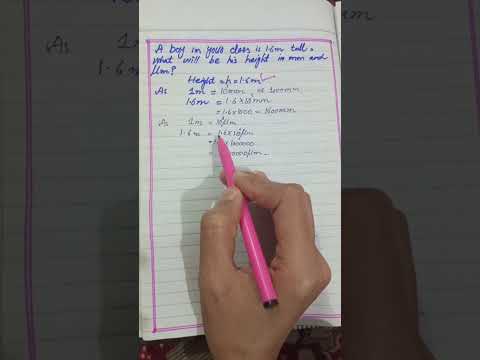 A boy in your class is 1.6m tall.
what will be his height in mm and
μm?
Height = h = 1.6m
As 1m = 10³mm or 1000mm
1.6m = 1.6 x 10³mm
= 1.6 x 1000 = 1600mm
As 1m = 10⁶μm
1.6m = 1.6 x 10⁶μm
=
As 1m
1.6m